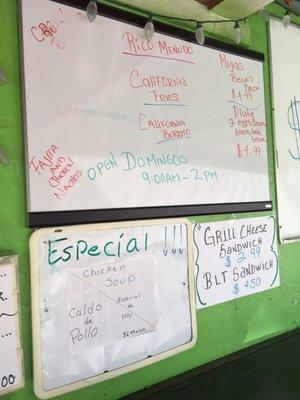 Rico Menudo
California
Fries
California
Burrito
Migas
Bacon
$4.99
Plate
2 eggs, Bacon
$4.99
Fajita
and
Chicken
Nachos
Open Domingos
9:00AM - 2PM
Especial !!!
Chicken
Soup
Caldo
de
Pollo
Especial de
Hoy
Grill Cheese
Sandwich
$2.99
BLT Sandwich
$4.50